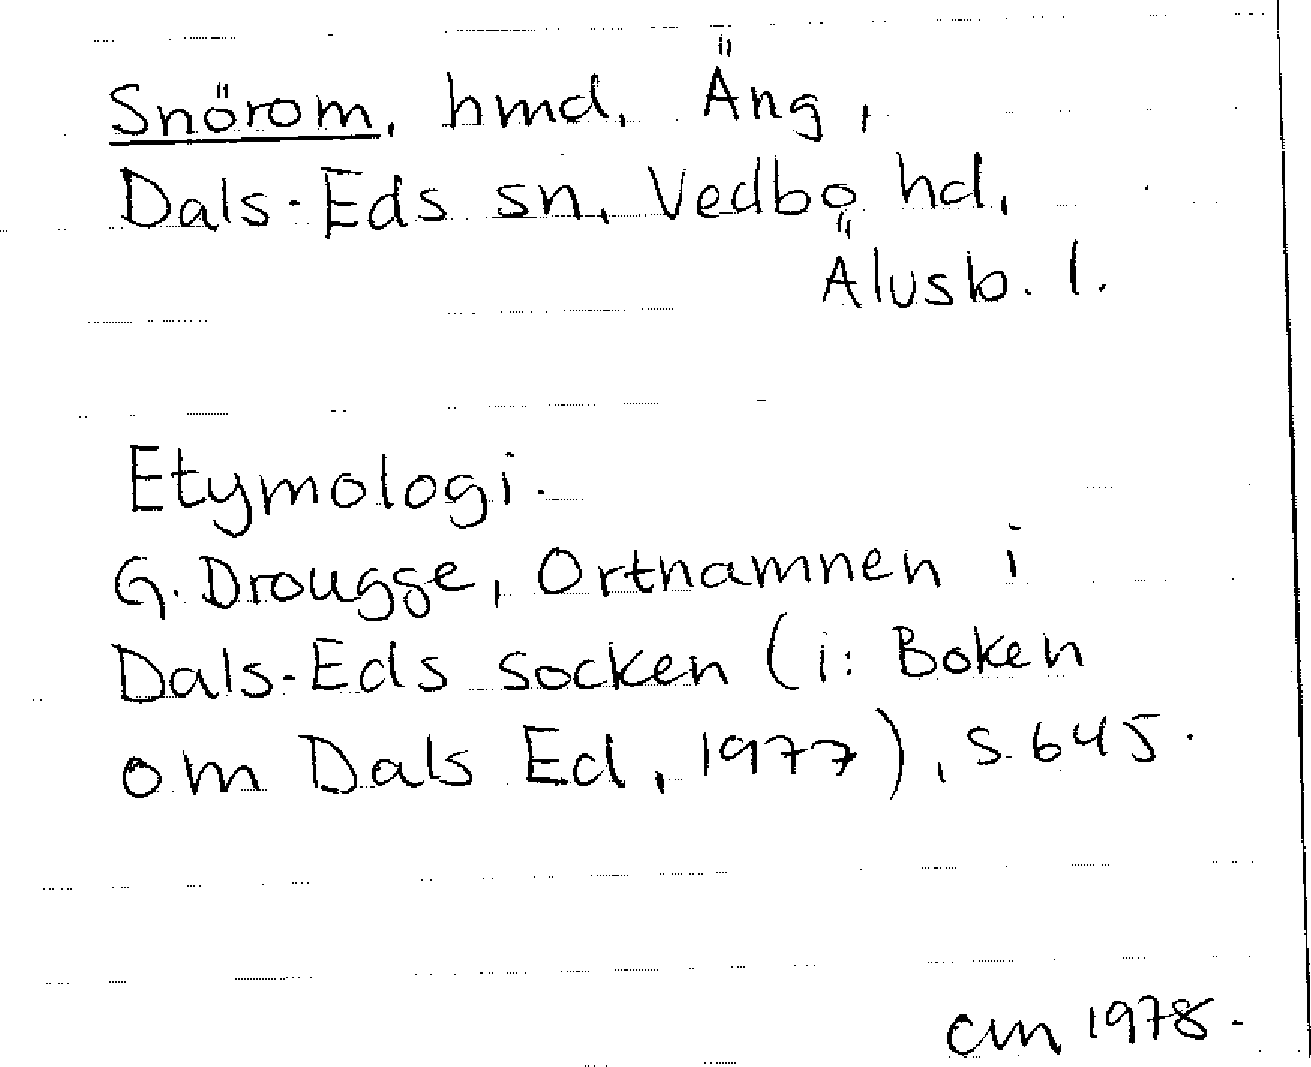 Snörom, hmd. Äng,
Dals-Eds sn, Vedbo hd,
Älvsb. l.
Etymologi.
G. Drougge, Ortnamnen i
Dals-Eds socken (i: Boken
om Dals Ed, 1977), s. 645.
cm 1978.